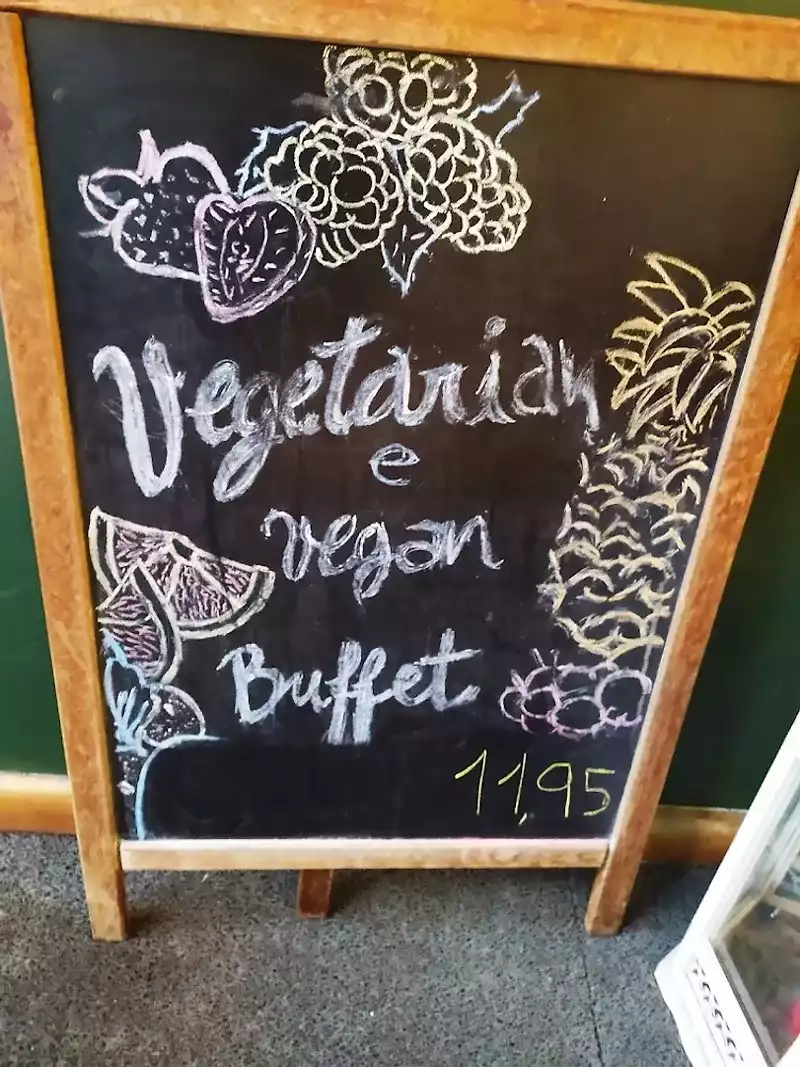 Vegetarian
e
vegan
Buffet
11,95